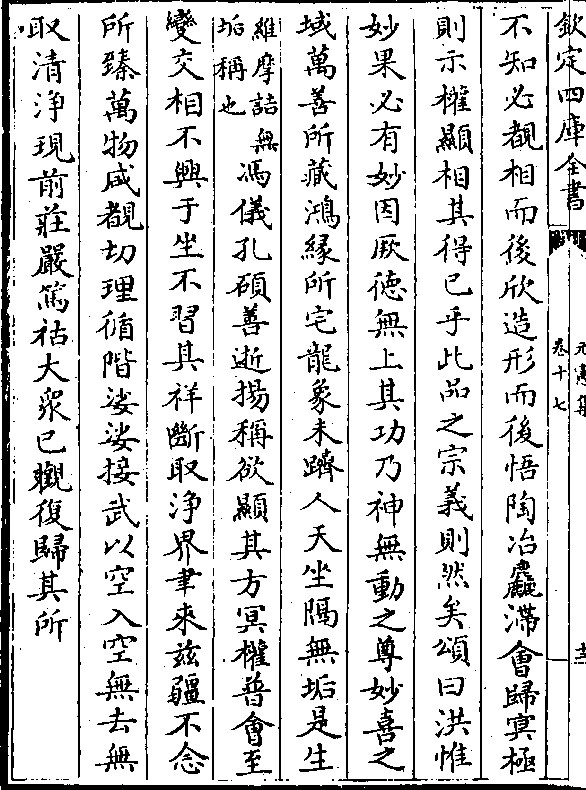 欽定四庫全書
元憲集
卷十七
不知必覩相而後欣造形而後悟陶冶麤滯會歸冥極
則示權顯相其得已乎此品之宗義則然矣頌曰洪惟
妙果必有妙因厥德無上其功乃神無動之尊妙喜之
域萬善所藏鴻縁所宅龍象未躋人天坐隔無垢是生
維摩詰無
垢稱也
馮儀孔碩善逝揚稱欲顯其方冥權普會至
變交相不興于坐不習其祥斷取浄界聿來兹疆不念
所臻萬物咸覩切理循階娑娑接武以空入空無去無
取清浄現前莊嚴篤祜大衆已觀復歸其所